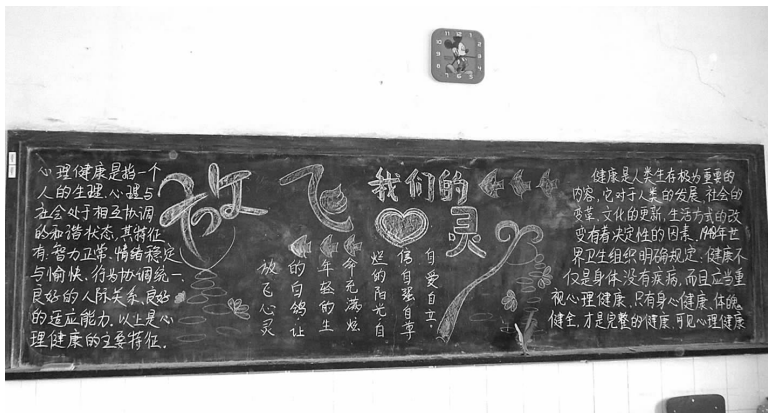 心理健康是指一个
人的生理、心理与
社会处于相互协调
的和谐状态,其特征
有:智力正常、情绪稳定
与愉快、行为协调统一、
良好的人际关系、良好
的适应能力。以上是心
理健康的主要特征。
放飞
我们的
灵
放飞心灵
的白鸽,让
年轻的生
命充满灿
烂的阳光自
信自强自尊
自爱自立.
健康是人类生存极为重要的
内容,它对于人类的发展,社会的
变革,文化的更新,生活方式的改
变有着决定性的因素.1948年世
界卫生组织明确规定:健康不
仅是身体没有疾病,而且应当重
视心理健康,只有身心健康、体魄
健全,才是完整的健康,可见心理健康